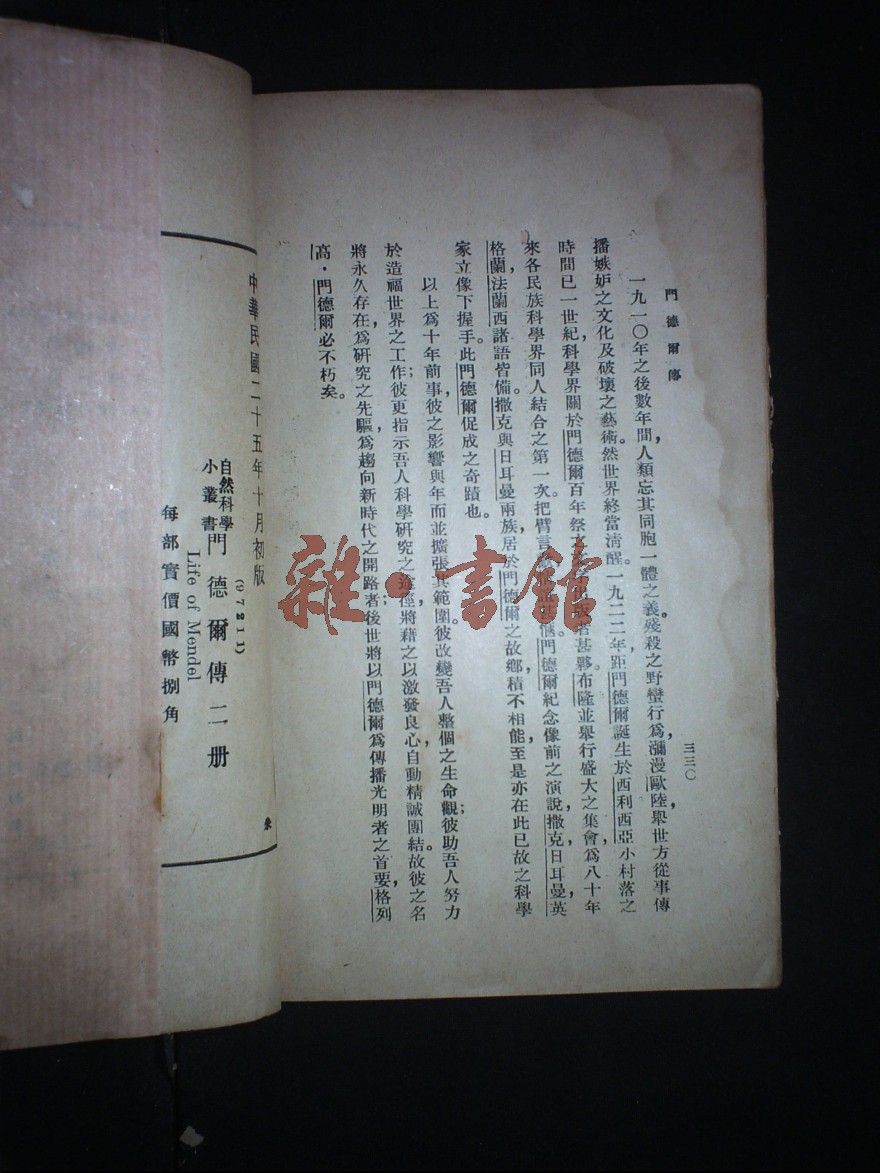 門德爾傳
三三〇
一九一〇年之後數年間，人類忘其同胞一體之義，殘殺之野蠻行爲，瀰漫歐陸，舉世方從事傳
播嫉妒之文化及破壞之藝術。然世界終當清醒。一九二二年，距門德爾誕生於西利西亞小村落之
時間已一世紀，科學界關於門德爾百年祭之出版者甚夥。布隆並舉行盛大之集會，爲八十年
來各民族科學界同人結合之第一次。把臂言門德爾紀念像前之演說，撒克、日耳曼、英
格蘭、法蘭西諸語皆備。撒克與日耳曼兩族居於門德爾之故鄉，積不相能，至是亦在此已故之科學
家立像下握手。此門德爾促成之奇蹟也。
以上爲十年前事，彼之影響與年而並擴張其範圍。彼改變吾人整個之生命觀；彼助吾人努力
於造福世界之工作；彼更指示吾人科學研究之途徑，將藉之以激發良心，自動精誠團結。故彼之名
將永久存在，爲研究之先驅，爲趨向新時代之開路者，後世將以門德爾爲傳播光明者之首要，格列
高・門德爾必不朽矣。
中華民國二十五年十月初版
(97211)
自然科學小叢書 門德爾傳 二册
Life of Mendel
每部實價國幣捌角
雜·書館